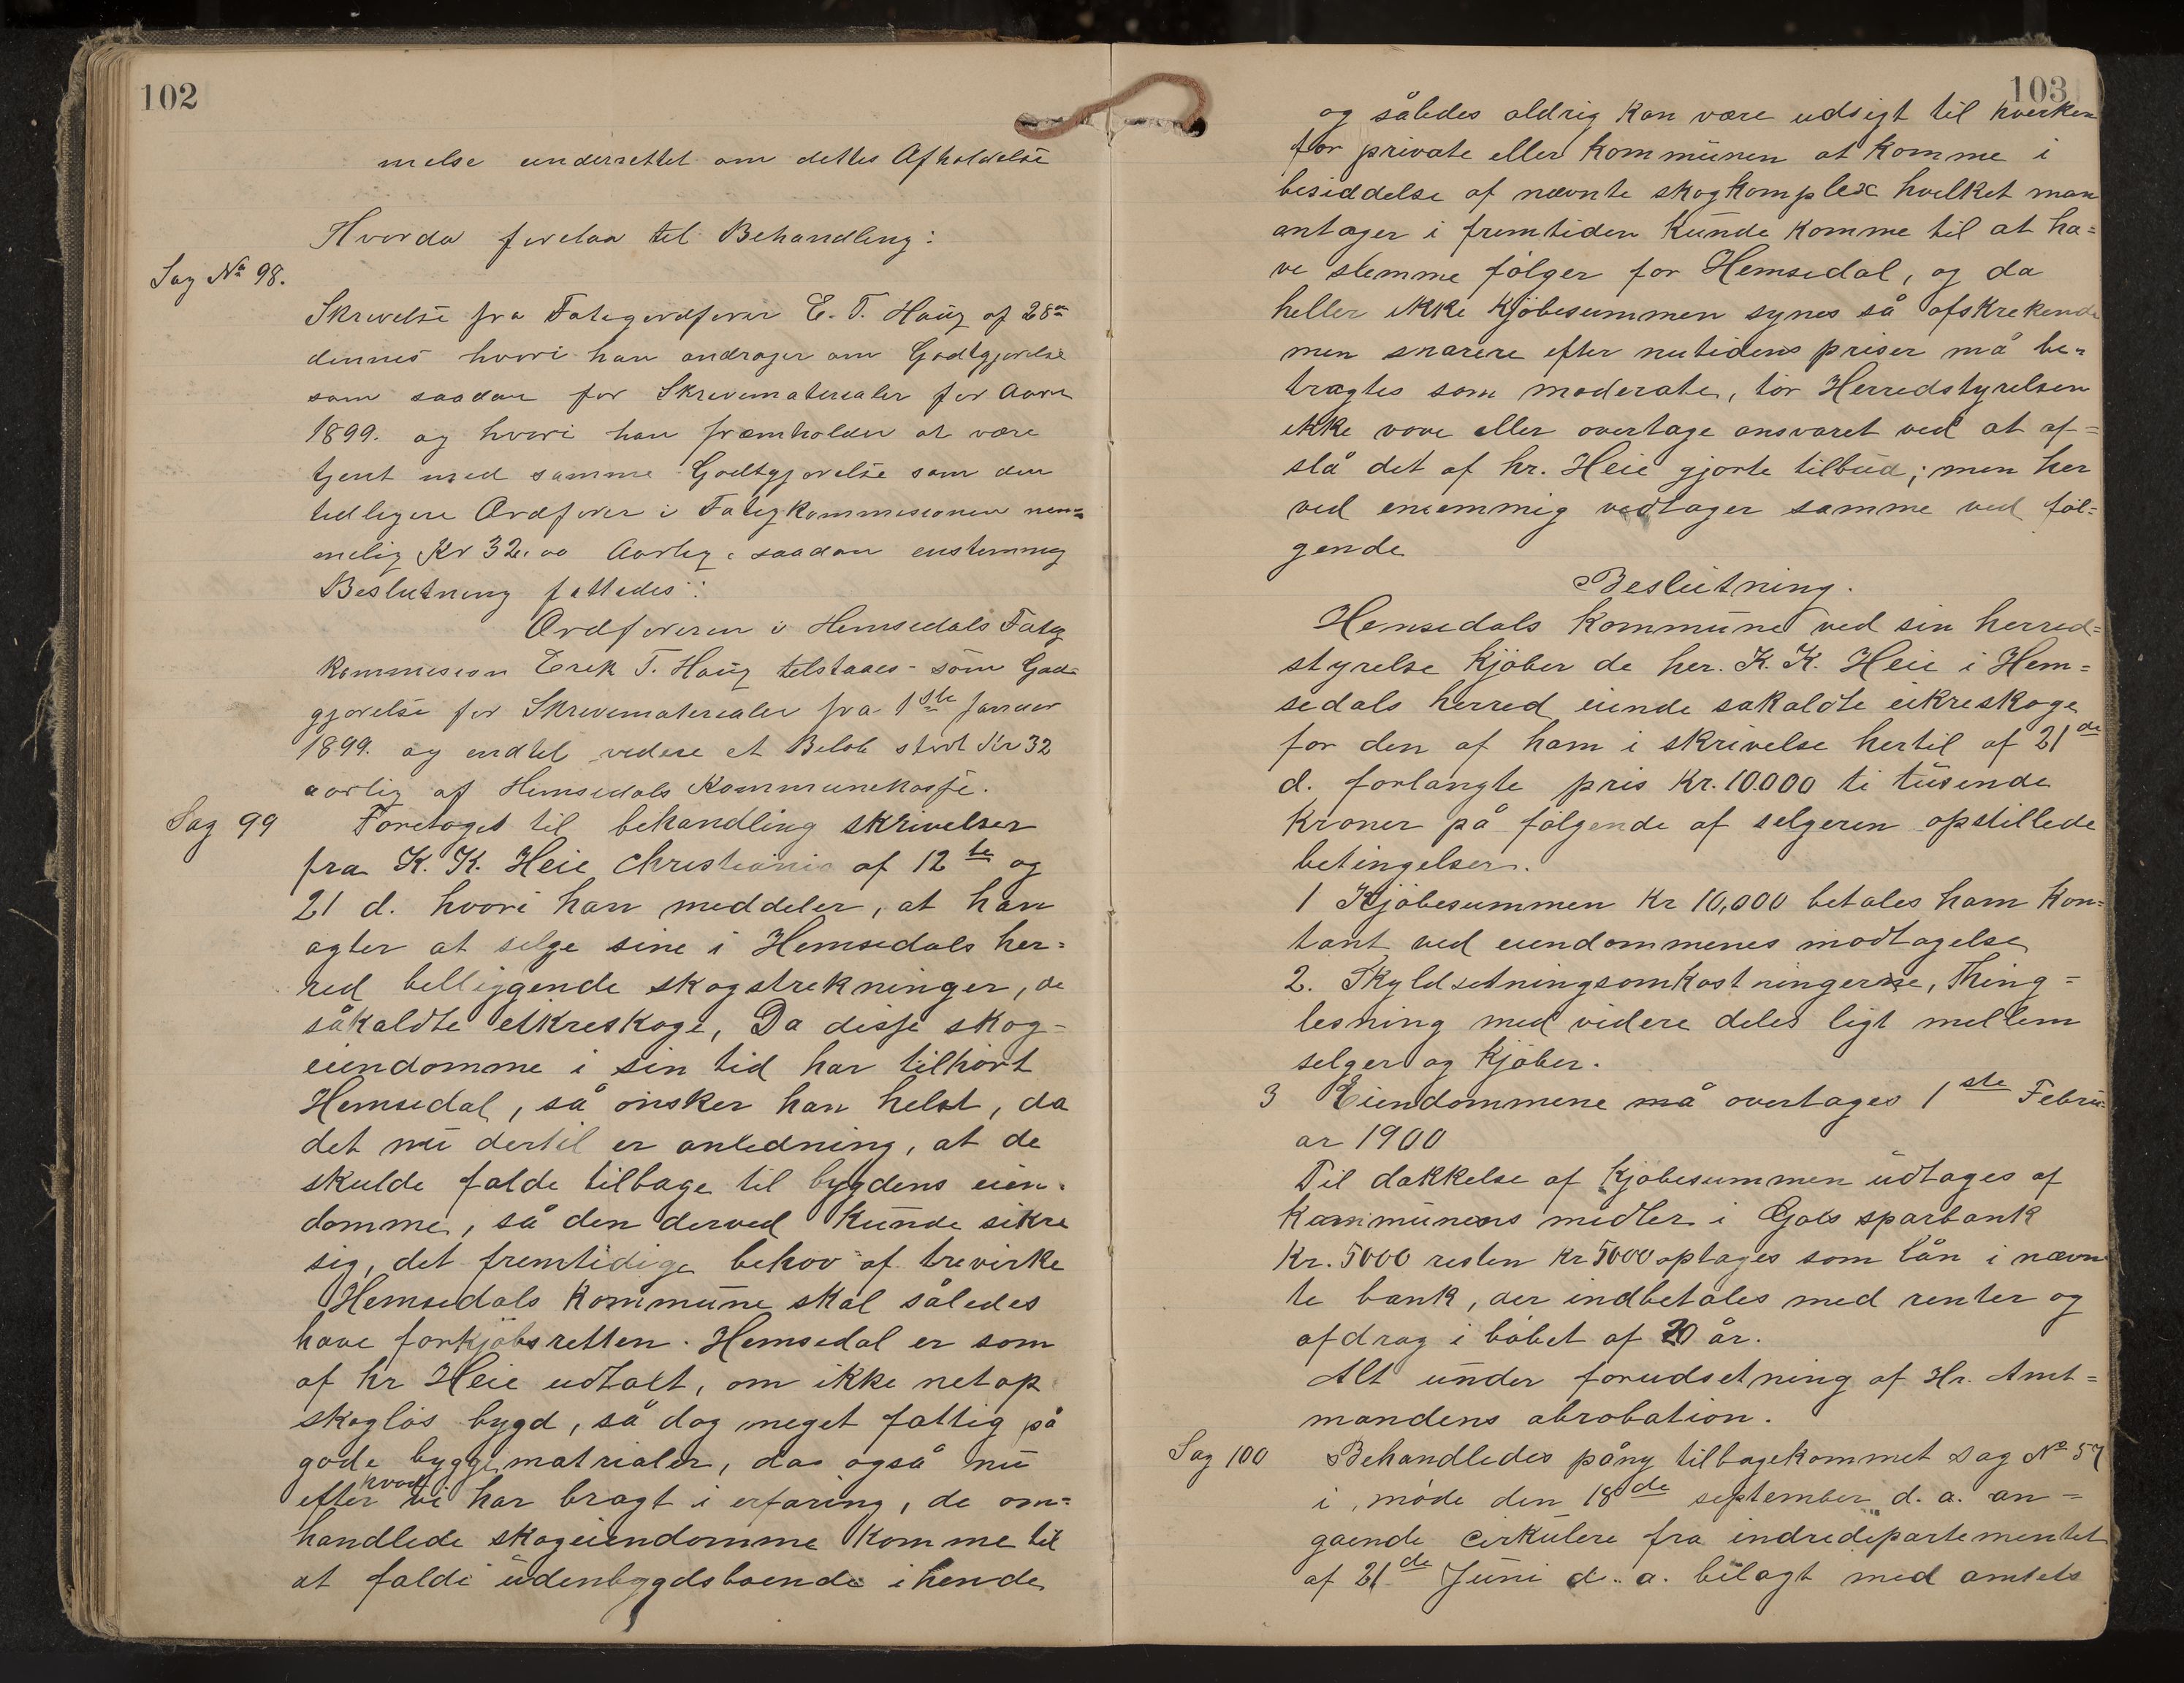 102
melse underrettet om dettes Afholdelse
Hvorda forelaa til Behandling:
Sag No 98.
Skrivelse fra Fatigordfører E. T. Haug af 28de
dennes hvori han andrager om Godtgjørelse
som saadan for Skrivematerialer for Aaret
1899. og hvori han fremholder at være
tjent med samme Godtgjørelse som den
tidligere Ordfører i Fatigkommissionen nem=
melig Kr 32.00 Aarlig. saadan enstemmig
Beslutning fattedes:
Ordføreren i Hemsedals Fatig
kommission Erik T. Haug tilstaaes som God
gjørelse for Skrivematerialer fra 1ste Januar
1899. og indtil videre et Beløb stort Kr 32
aarlig af Hemsedals Kommunekasse.
Sag 99 Foretoges til behandling skrivelser
fra K. K. Heie Christiania af 12te og
21 d. hvori han meddeler, at han
agter at selge sine i Hemsedals her=
red belliggende skogstrekninger, de
såkaldte eikreskoge, Da disse skog=
eiendomme i sin tid har tilhørt
Hemsedal, så ønsker han helst, da
det nu dertil er anledning, at de
skulde falde tilbage til bygdens eien=
domme, så den derved kunde sikre
sig, det fremtidige behov af trevirke
Hemsedals kommune skal således
have forkjøbsretten. Hemsedal er som
af hr Heie udtalt, om ikke netop
skogløs bygd, så dog meget fattig på
gode byggematrialer, da også nu
efter hvad vi har bragt i erfaring, de om=
handlede skogeiendomme komme til
at falde udenbygdsboende ihende
103
og således aldrig kan være udsigt til hverken
for private eller kommunen at komme i
besiddelse af nævnte skogkomplex hvilket man
antager i fremtiden kunde komme til at ha=
ve slemme følger for Hemsedal, og da
heller ikke kjøbesummen synes så afskrekende
men snarere efter nutidens priser må be=
tragtes som moderate, tør Herredstyrelsen
ikke vove eller overtage ansvaret ved at af=
slå det af hr. Heie gjorte tilbud; men her
ved enemmig vedtager samme ved føl=
gende
Beslutning.
Hemsedals kommune ved sin herred=
styrelse kjøber de her. K. K. Heie i Hem=
sedals herred eiende sakaldte eikreskoge
for den af ham i skrivelse hertil af 21de
d. forlangte pris Kr. 10.000 ti tusende
kroner på følgende af selgeren opstillede
betingelser.
1 Kjøbesummen Kr 10,000 betales ham kon=
tant ved eiendommenes modtagelse
2. Skyldsetningsomkostningerne, Thing=
lesning med videre deles ligt mellem
selger og kjøber.
3 Eiendommene må overtages 1ste Febru=
ar 1900
Til dekkelse af kjøbesummen udtages af
kommunens midler i Gols sparbank
Kr. 5000 resten Kr 5000 optages som lån i nævn
te bank, der indbetales med renter og
afdrag i løbet af 20 år.
Alt under forudsetning af Hr. Amt=
mandens abrobation.
Sag 100 Behandledes påny tilbagekommet Sag No 57
i møde den 18de september d. a. an=
gaende cirkulere fra indredepartementet
af 21de Juni d. a. bilagt med amtets